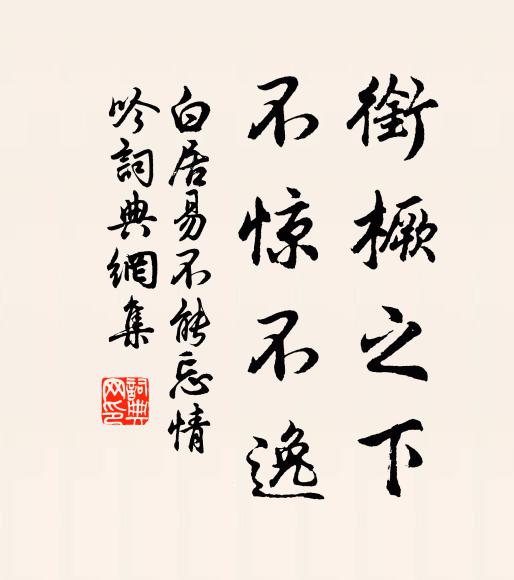 銜橛之下
不惊不逸
白居易不能忘情
吟詞典網集
詞典
网印